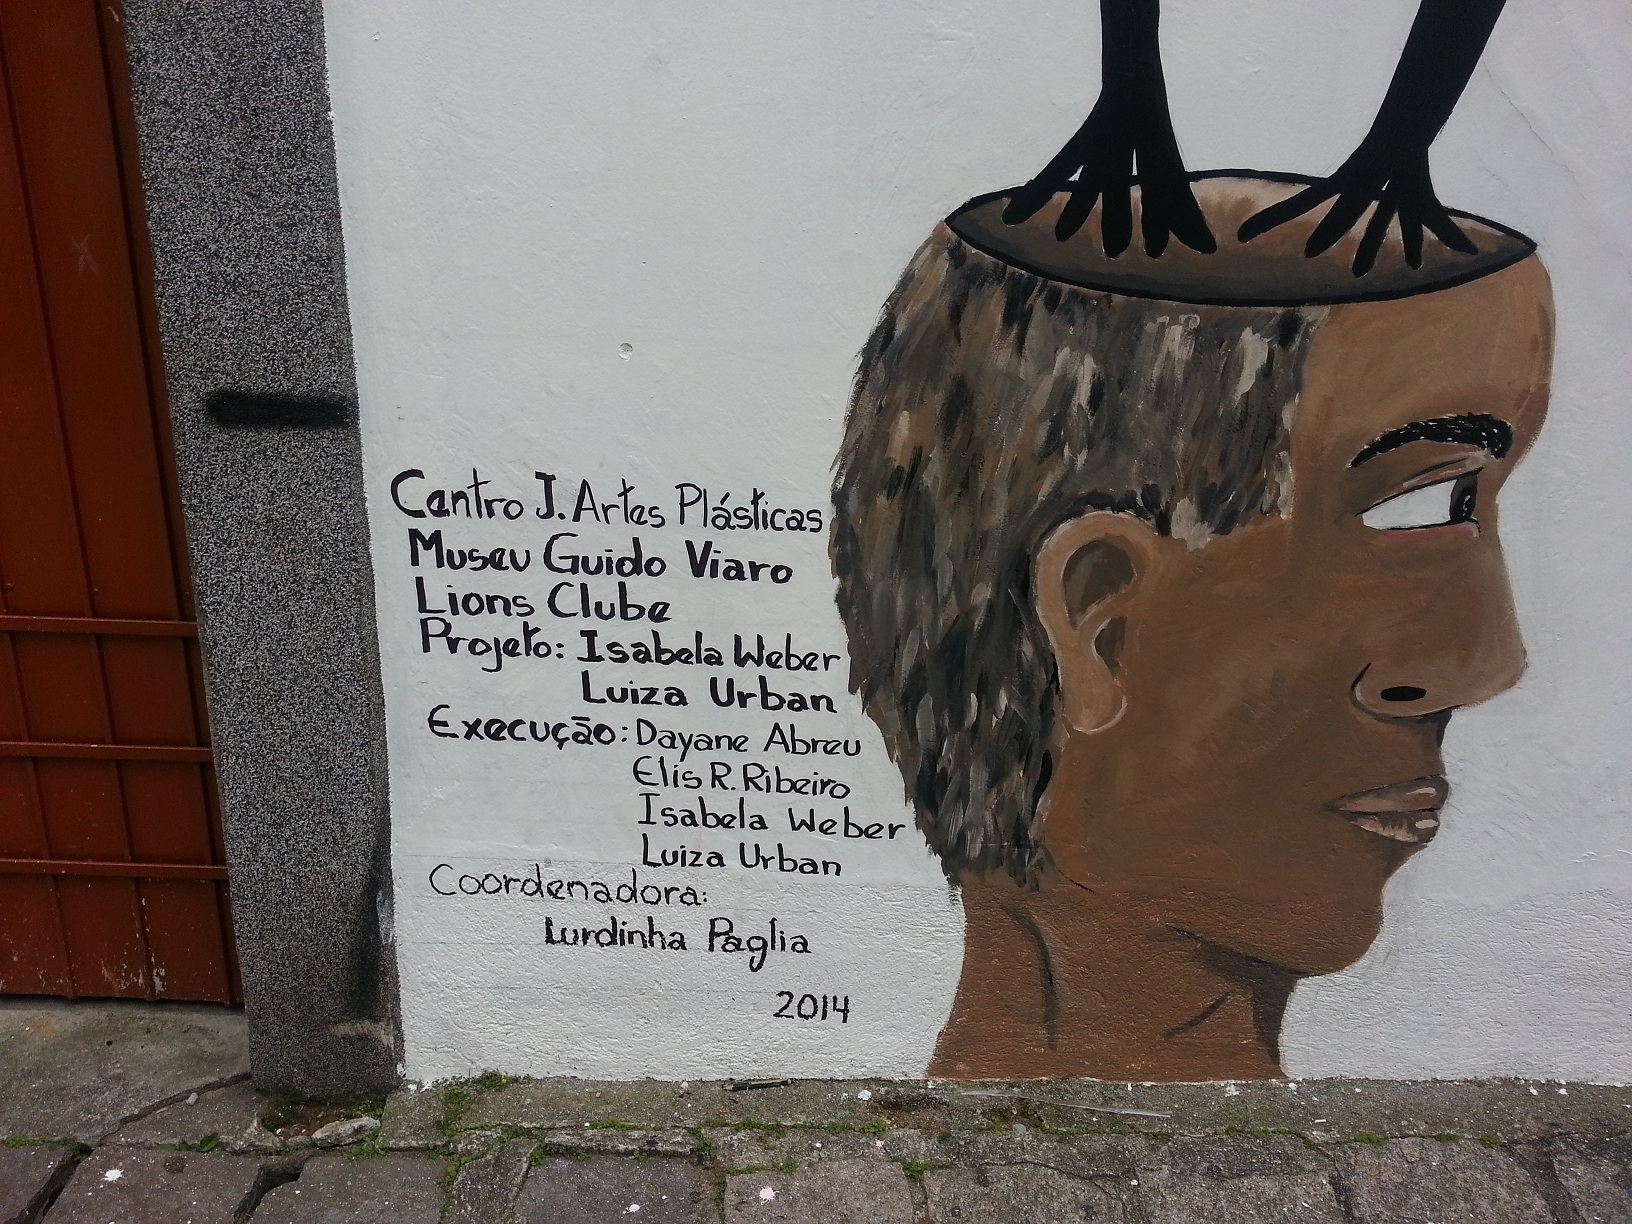 Centro J. Artes Plásticas
Museu Guido Viaro
Lions Clube
Projeto: Isabela Weber
Luiza Urban
Execução: Dayane Abreu
Elis R. Ribeiro
Isabela Weber
Luiza Urban
Coordenadora:
Lurdinha Paglia
2014